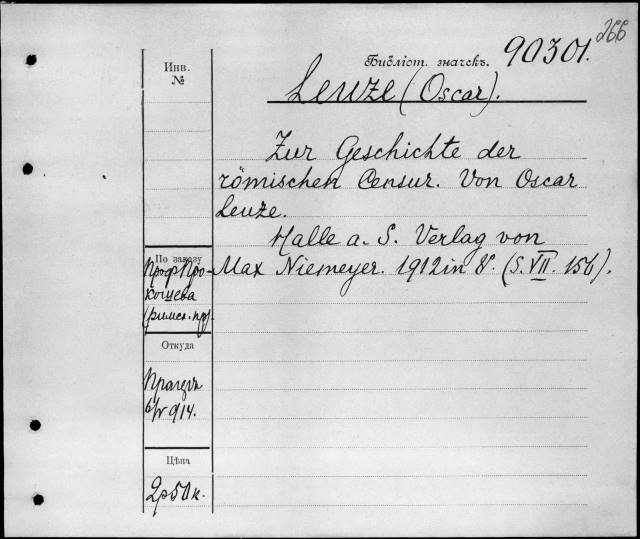 266
Библіот. значекъ. 90301.
Инв.
№
Leuze (Oscar).
Zur Geschichte der
römischen Censur. Von Oscar
Leuze.
Halle a. S. Verlag von
Max Niemeyer. 1912 in 8. (S. VII. 156).
По заказу
Проф. Про-
кошева
(римск. пр).
Откуда
914.
Цѣна
2р50к.